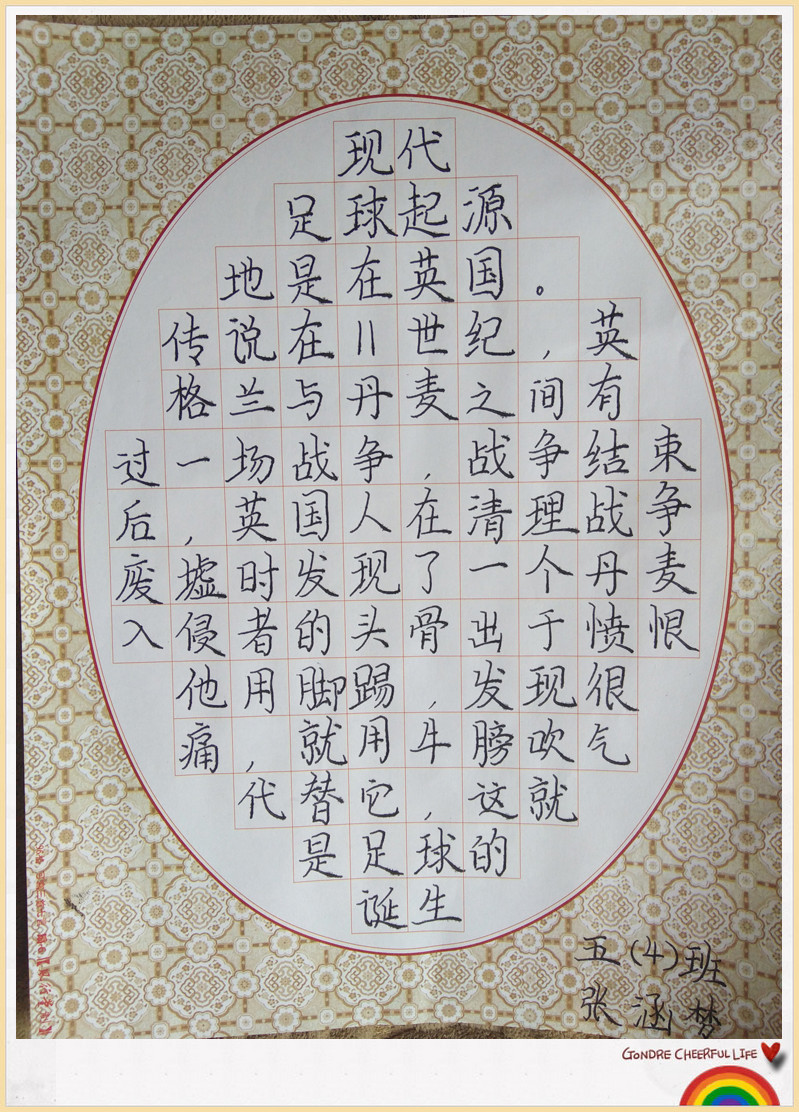 现代
足球起源
地是在英国。
传说在11世纪,英
格兰与丹麦之间有
过一场战争,战争结束
后,英国人在清理战争
废墟时发现了一个丹麦
入侵者的头骨出于愤恨
他用脚踢,发现很
痛,就用牛膀吹气
代替它,这就
是足球的
诞生
五(4)班
张涵梦
GONDRE CHEERFUL LIFE